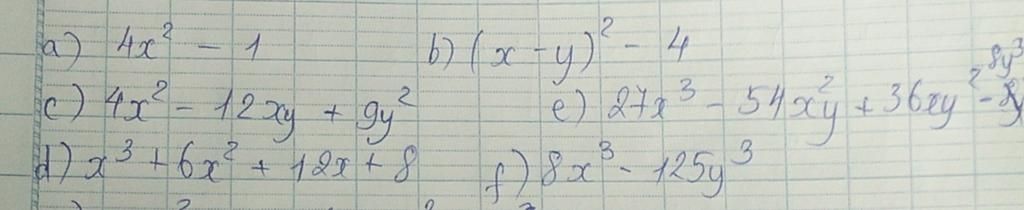 a) 4x² - 1 b) (x - y)² - 4
c) 4x² - 12xy + 9y² e) 27x³ - 54x²y + 36xy² - 8y³
d) x³ + 6x² + 12x + 8 f) 8x³ - 125y³